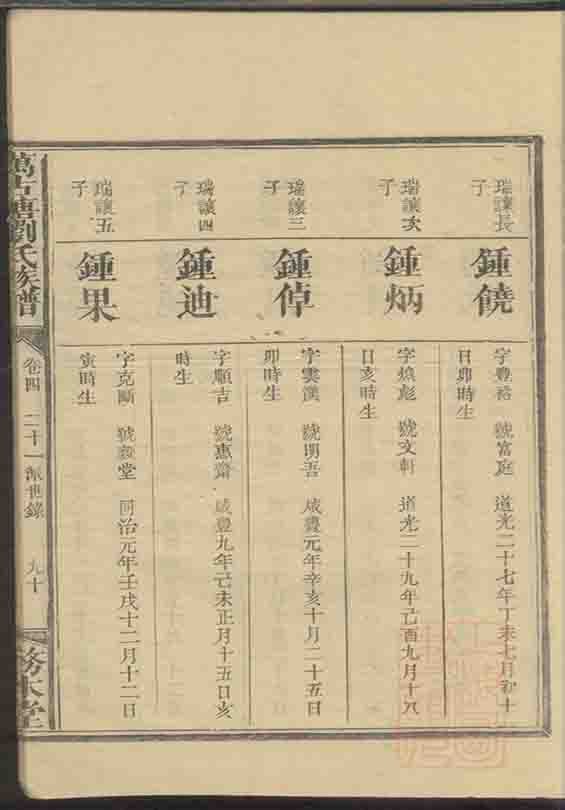 瑞讓長
子
鍾饒
字豊裕 號富庭 道光二十七年丁未七月初十
日卯時生
瑞讓次
子
鍾炳
字煥彪 號文軒 道光二十九年己酉九月十八
日亥時生
瑞讓三
子
鍾倬
字雲漢 號明吾 咸豊元年辛亥十月二十五日
卯時生
瑞讓四
子
鍾迪
字順吉 號惠齋 咸豊九年己未正月十五日亥
時生
瑞讓五
子
鍾果
字克斷 號毅堂 同治元年壬戌十二月十二日
寅時生
萬古塘劉氏族譜
卷四 二十一派世錄 九十
務本堂